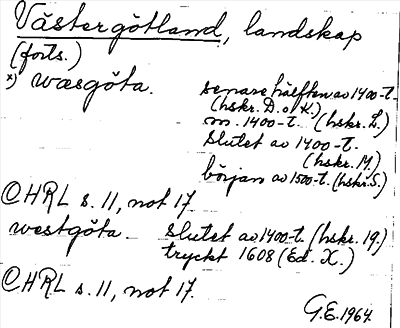 Västergötland, landskap
(forts.)
x) wæsgöta. senare hälften av 1400-t.
(hskr. D. o. K.)
m. 1400-t. (hskr. L.)
slutet av 1400-t.
(hskr. M.)
början av 1500-t. (hskr. S.)
CHRL s. 11, not 17.
westgöta. slutet av 1400-t. (hskr. 19.)
tryckt 1608 (Ed. X.)
CHRL s. 11, not 17.
G.E. 1964.